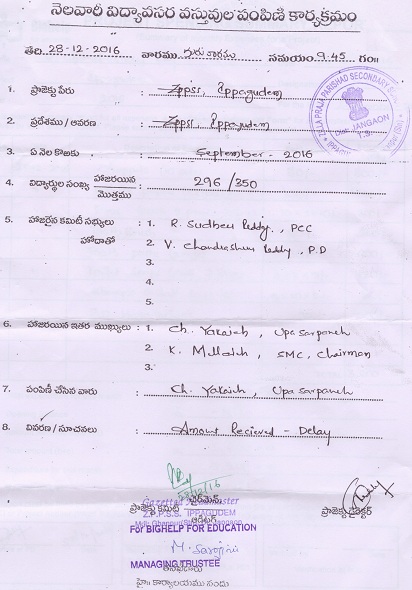 నెలవారీ విద్యావసర వస్తువుల పంపిణీ కార్యక్రమం
తేది 28-12-2016 వారము గురువారము సమయం 9.45 గం॥
1. ప్రాజెక్టు పేరు : Zppss, Ippagudem
2. ప్రదేశము / ఆవరణ : Zppss, Ippagudem
3. ఏ నెల కొఱకు : September - 2016
4. విద్యార్థుల సంఖ్య హాజరయిన / మొత్తము : 296 / 350
5. హాజరైన కమిటీ సభ్యులు : 1. R. Sudheer Reddy, PCC
హోదాతో 2. V. Chandrashekar Reddy, P.D
3.
4.
5.
6. హాజరయిన ఇతర ముఖ్యులు : 1. Ch. Yakaiah, Upa Sarpanch
2. K. Mallaiah, SMC, Chairman
3.
7. పంపిణీ చేసిన వారు : Ch. Yakaiah, Upa Sarpanch
8. వివరణ / సూచనలు : Amount Recieved - Delay
ZILLA PRAJA PARISHAD SECONDARY
Dist. JANGAON
T.S.
ప్రాజెక్టు కమిటీ ఛైర్మెన్
Gazetted Headmaster
Z.P.P.S.S. IPPAGUDEM
ఆడిటర్
ప్రాజెక్టు డైరెక్టర్
For BIGHELP FOR EDUCATION
M. Sarojini
MANAGING TRUSTEE
హై॥ కార్యాలయము నందు